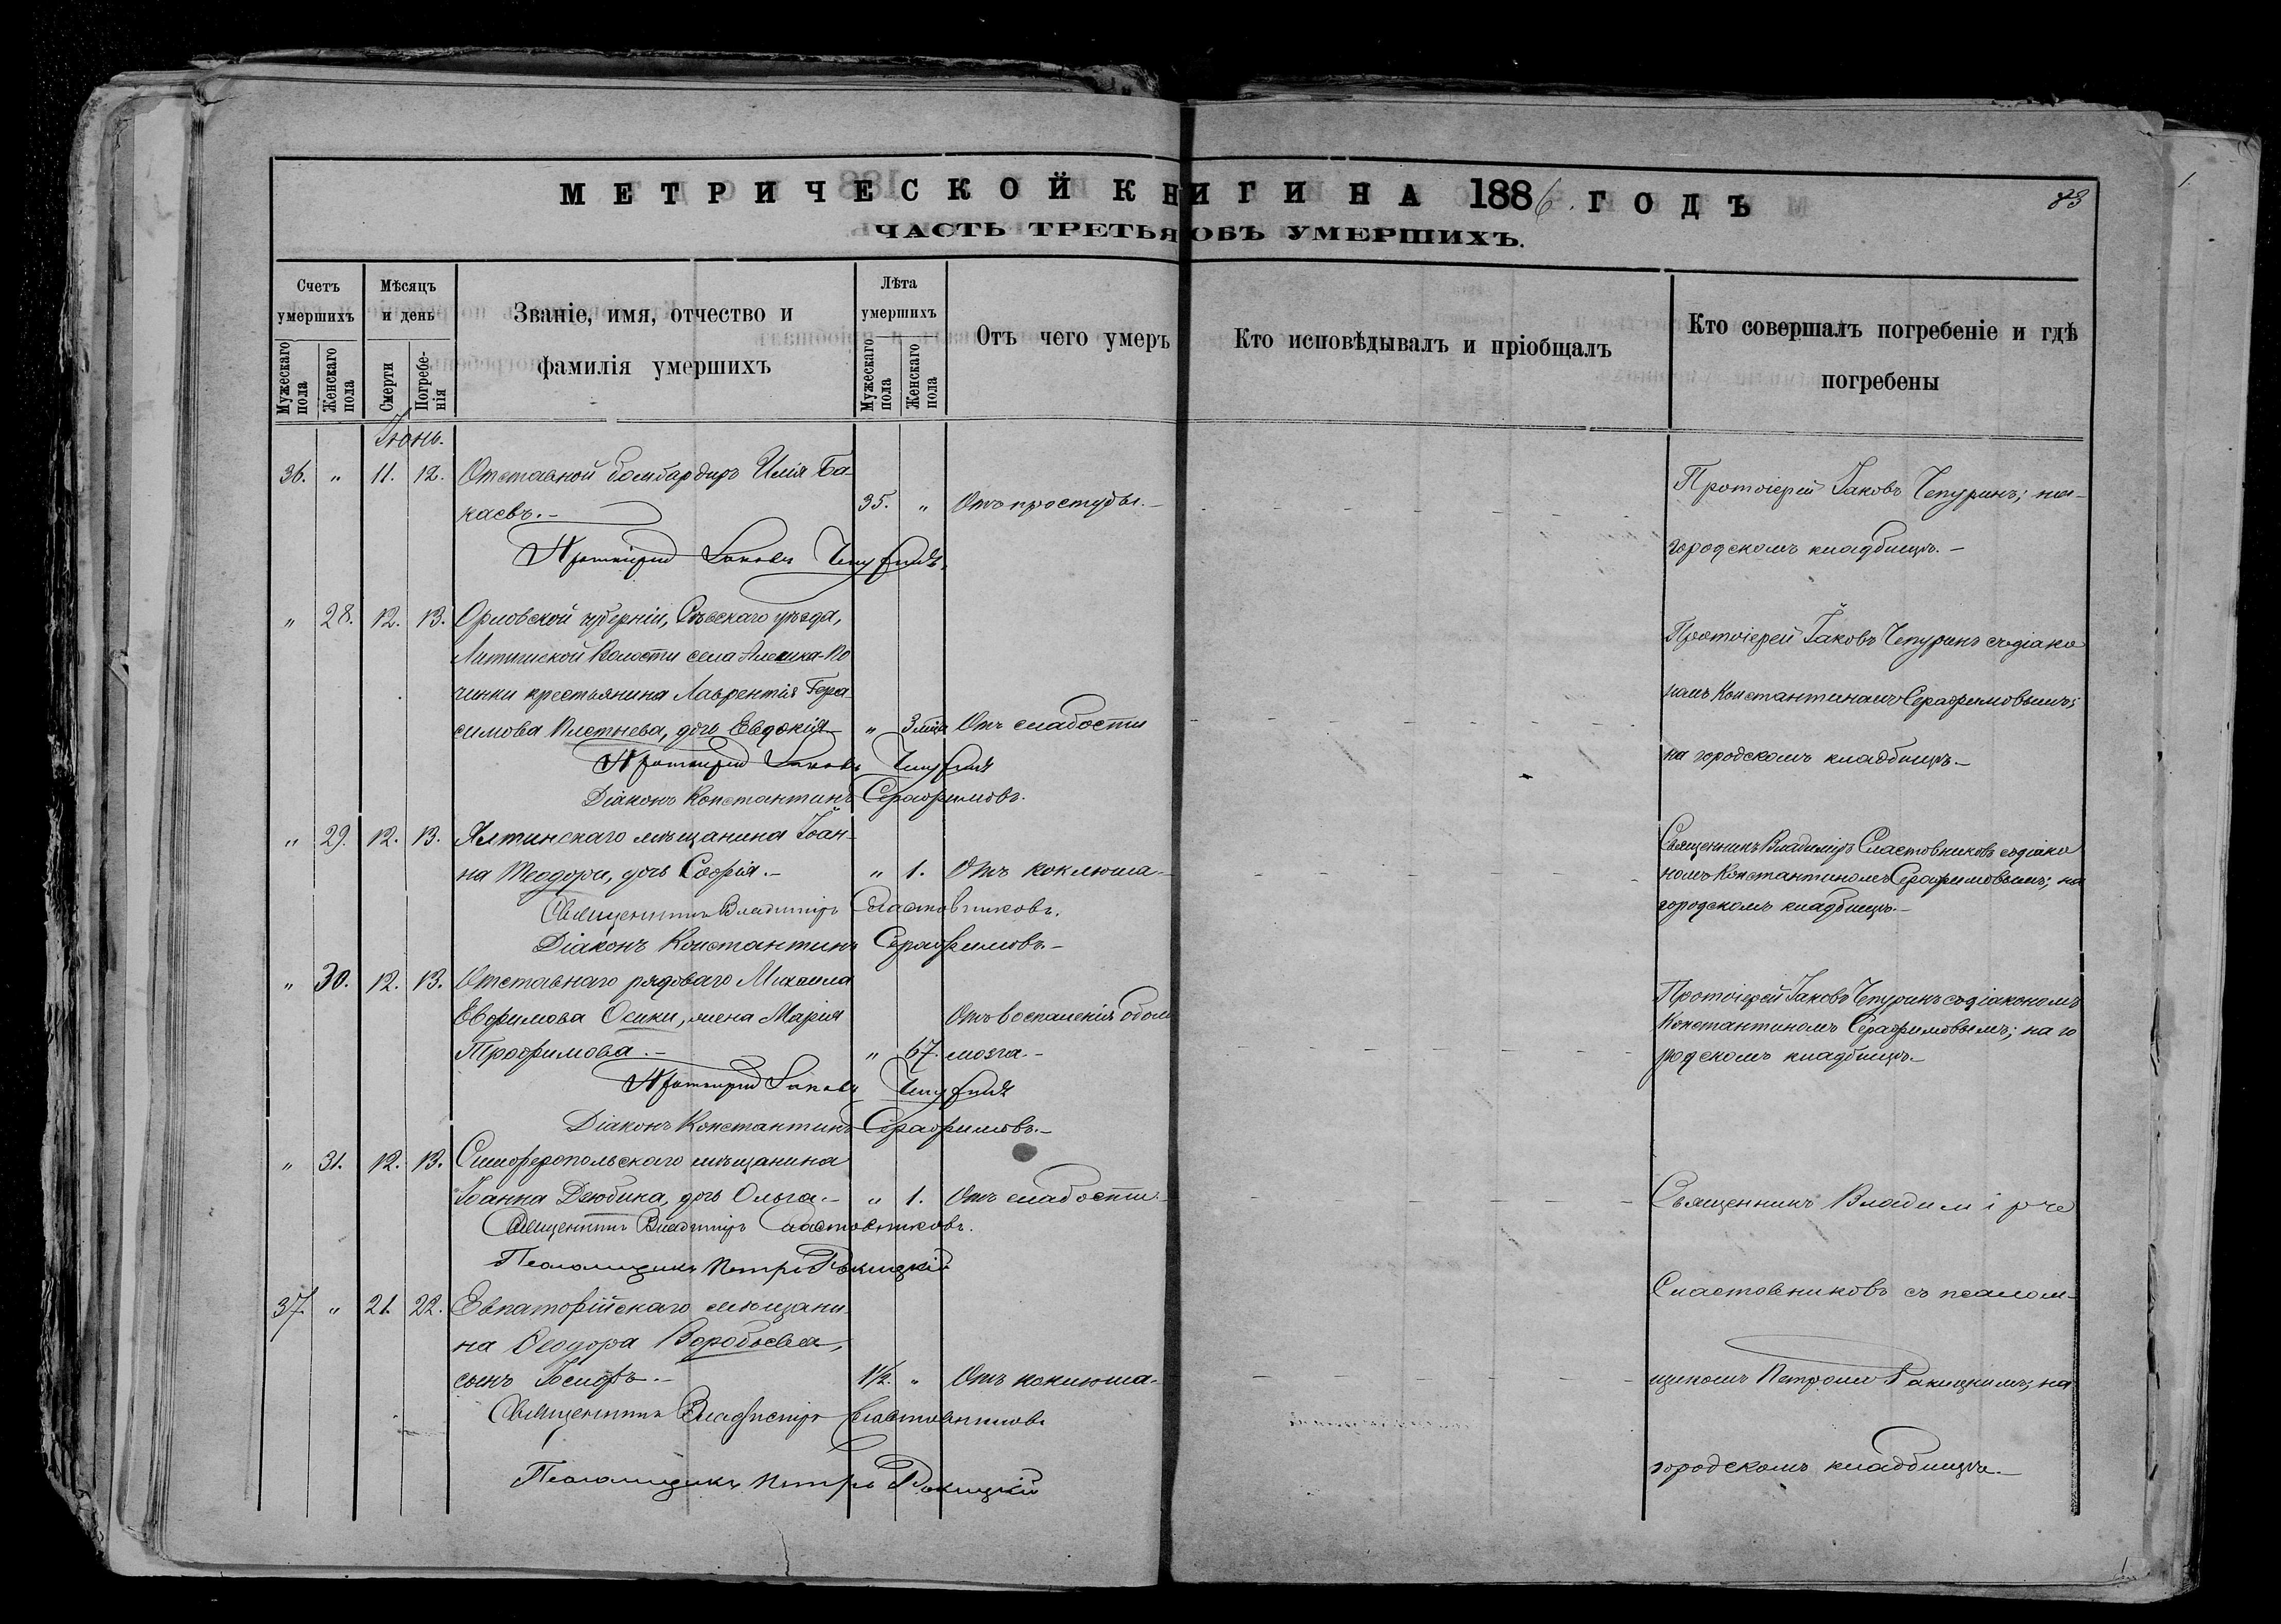 МЕТРИЧЕСКОЙ КНИГИ НА 1886 ГОДЪ
83
ЧАСТЬ ТРЕТЬЯ ОБЪ УМЕРШИХЪ.
Счетъ умершихъ
Мужескаго пола
Женскаго пола
Мѣсяцъ и день
Смерти
Погребе-
нія
Званіе, имя, отчество и
фамилія умершихъ
Лѣта умершихъ
Мужескаго пола
Женскаго пола
Отъ чего умеръ
Кто исповѣдывалъ и пріобщалъ
Кто совершалъ погребеніе и гдѣ
погребены
Іюнь.
36. " 11. 12. Отставной бомбардиръ Илія Ба-
каевъ.- 35. " Отъ простуды.-
Протоіерей Іаковъ Чепуринъ; на
городскомъ кладбищѣ.-
Протоіерей Іаковъ Чепуринъ.
" 28. 12. 13. Орловской губерніи, Сѣвскаго уѣзда,
Волости села
чинки крестьянина Лаврентія Гера-
симова Плетнева, дочь Евдокія " 3 Отъ слабости
Протоіерей Іаковъ Чепуринъ съ діако
номъ Константиномъ Серафимовымъ;
на городскомъ кладбищѣ.-
Протоіерей Іаковъ Чепуринъ
Діаконъ Константинъ Серафимовъ.
" 29. 12. 13. Ялтинскаго мѣщанина Іоан-
на Теодори, дочь Софія.- " 1. Отъ коклюша-
Священникъ Владиміръ Сластовниковъ съ діако
номъ Константиномъ Серафимовымъ; на
городскомъ кладбищѣ.-
Священникъ Владиміръ Сластовниковъ.
Діаконъ Константинъ Серафимовъ.-
" 30. 12. 13. Отставнаго рядоваго Михаила
Евфимова Осики, жена Марія Отъ воспаленія обол
Трофимова.- " 67. мозга.-
Протоіерей Іаковъ Чепуринъ съ діакономъ
Константиномъ Серафимовымъ; на го
родскомъ кладбищѣ.-
Протоіерей Іаковъ Чепуринъ
Діаконъ Константинъ Серафимовъ.-
" 31. 12. 13. Симферопольскаго мѣщанина
Іоанна Дзюбина, дочь Ольга.- " 1. Отъ слабости.-
Священникъ Владиміръ Сластовниковъ.
Псаломщикъ Петръ Ракицкій
37. " 21. 22. Евпаторійскаго мѣщани-
на Ѳеодора Воробьева,
сынъ Іосифъ.- 1½. " Отъ коклюша-
Священникъ Владиміръ
Сластовниковъ съ псалом-
щикомъ Петромъ Ракицкимъ; на
городскомъ кладбищѣ.-
Священникъ Владиміръ Сластовниковъ
Псаломщикъ Петръ Ракицкій